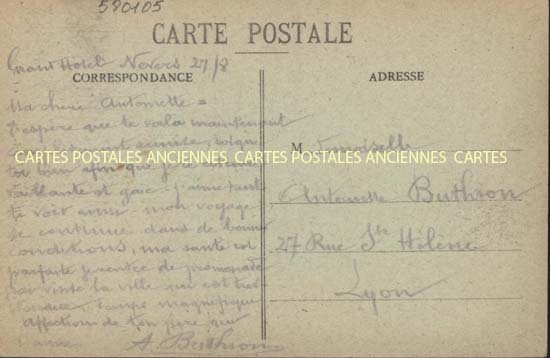 580105
CARTE POSTALE
Grand Hôtel Nevers 27/8
CORRESPONDANCE
ADRESSE
Ma chère Antoinette =
J'espère que te voilà maintenant
remise, soigne
toi bien afin que je te
vaillante et gaie. j'aime tant
te voir ainsi. mon voyage
se continue dans de bonnes
conditions, ma santé est
parfaite je rentre de promenade
la ville qui est très
temps magnifique
Affection de ton père qui
t'aime
A. Buthion
CARTES POSTALES ANCIENNES CARTES POSTALES ANCIENNES CARTES
Mademoiselle
Antoinette Buthion
27 Rue Ste Hélène
Lyon